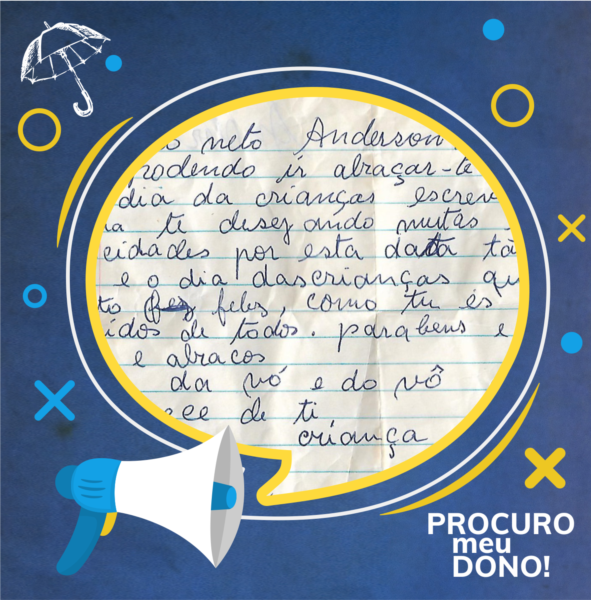 o neto Anderson
podendo ir abraçar-te
dia da crianças escrev
a ti desejando muitas
cidades por esta data tã
e o dia dascrianças qu
to feliz, como tu és
idos de todos. parabens e
e abracos
da vó e do vô
ce de ti
criança
PROCURO
meu
DONO!